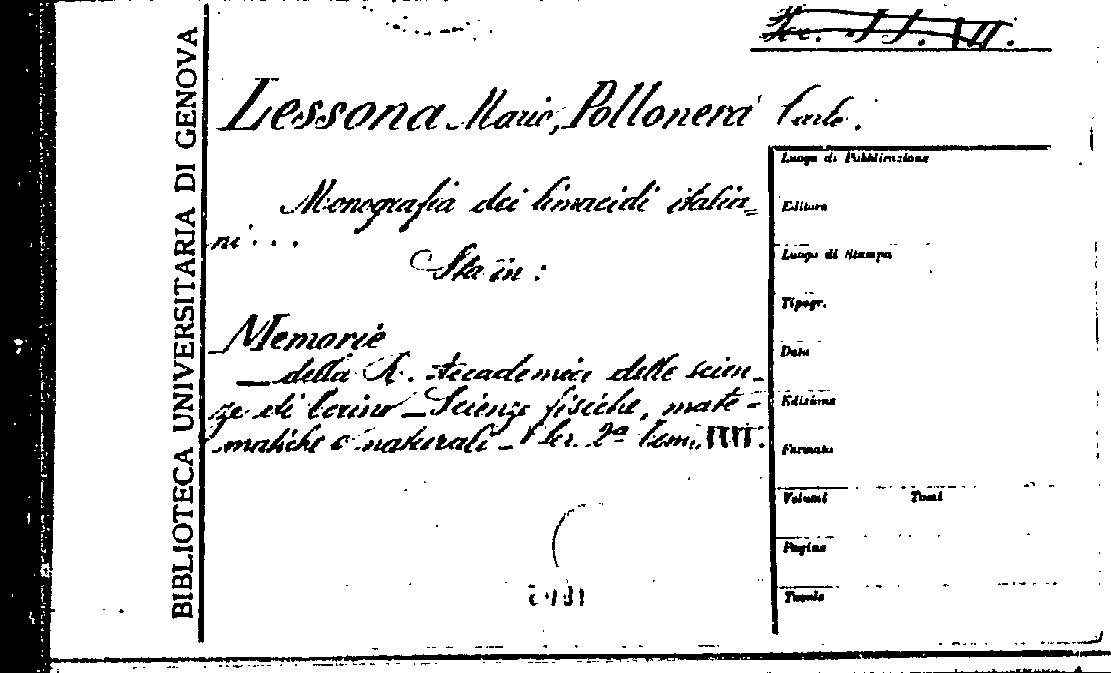 BIBLIOTECA UNIVERSITARIA DI GENOVA
Lessona Mario, Pollonera Carlo.
Monografia dei limacidi italia=
ni...
Sta in:
Memorie
della R. Accademia delle scien-
ze di Torino _ Scienze fisiche, mate-
matiche e naturali _ Ser. 2ª Tom.
Luogo di Pubblicazione
Editore
Luogo di Stampa
Tipogr.
Data
Edizione
Formato
Volumi Tomi
Pagine
Tavole